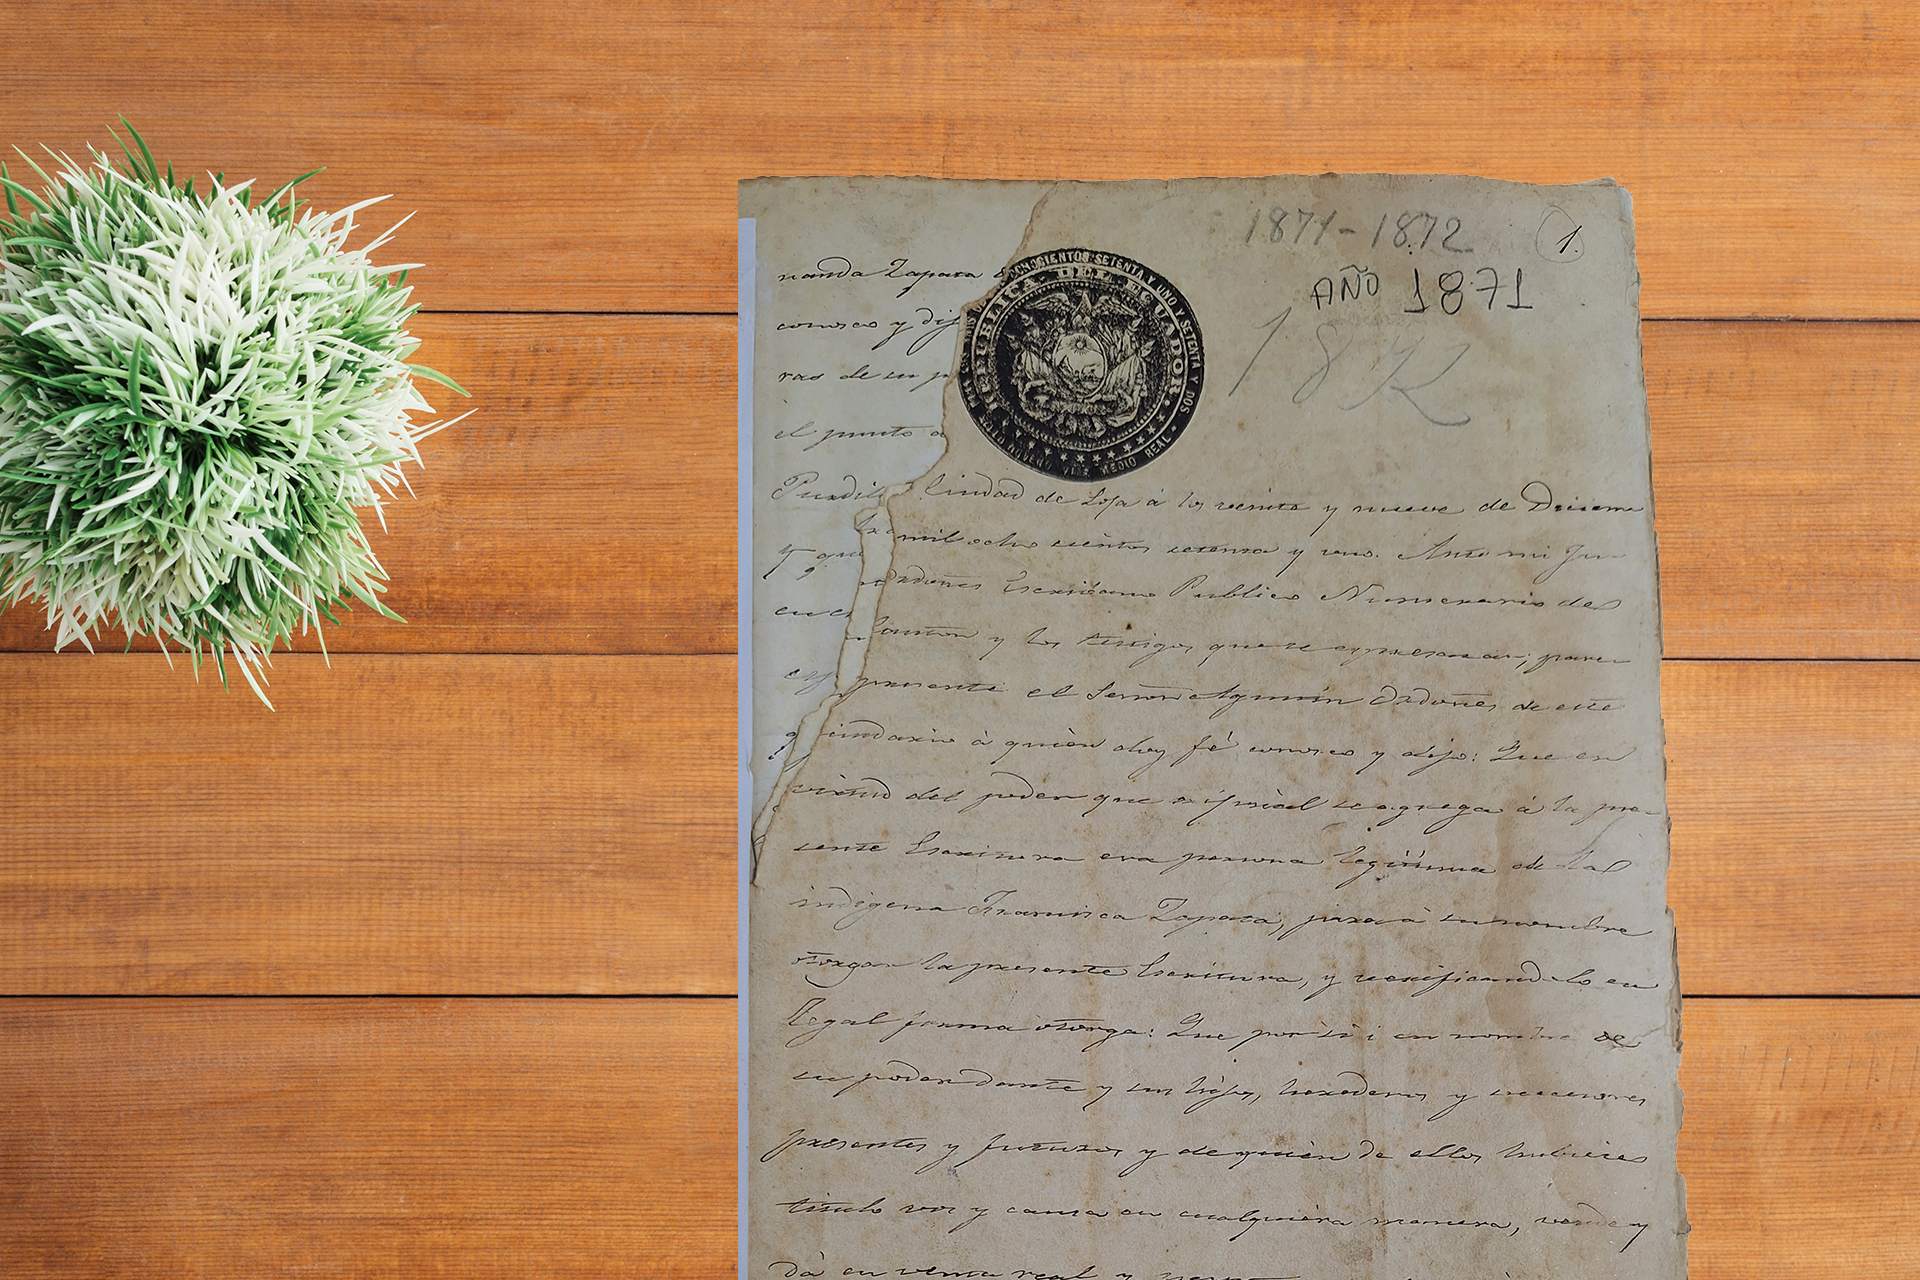 1871-1872
1.
AÑO 1871
187
OCHOCIENTOS SETENTA Y UNO Y SETENTA Y DOS
REPUBLICA DEL ECUADOR
VALE MEDIO REAL
nanda Zapata
conosco y dij
ras de su p
el punto a
Ciudad de Loja à los veinte y nueve de Diciem
mil ocho cientos setenta y uno. Ante mi Jua
Ordoñes Escribano Publico Numerario del
Canton y los testigos que se expresaran, pare
y que
en el
presente el Señor Agustin Ordoñes de este
cindario à quien doy fé conosco y dijo: Que en
virtud del poder que original se agrega à la pre-
sente Escritura era persona legitima de la
indigena Francisca Zapata, para à su nombre
otorgar la presente Escritura, y verificandolo en
legal forma otorga: Que por si i en nombre de
su poder dante y sus hijos, herederos y succesores
presentes y futuros y de quien de ellos hubiere
titulo vos y causa en cualquiera manera, vende y
dá en venta real y